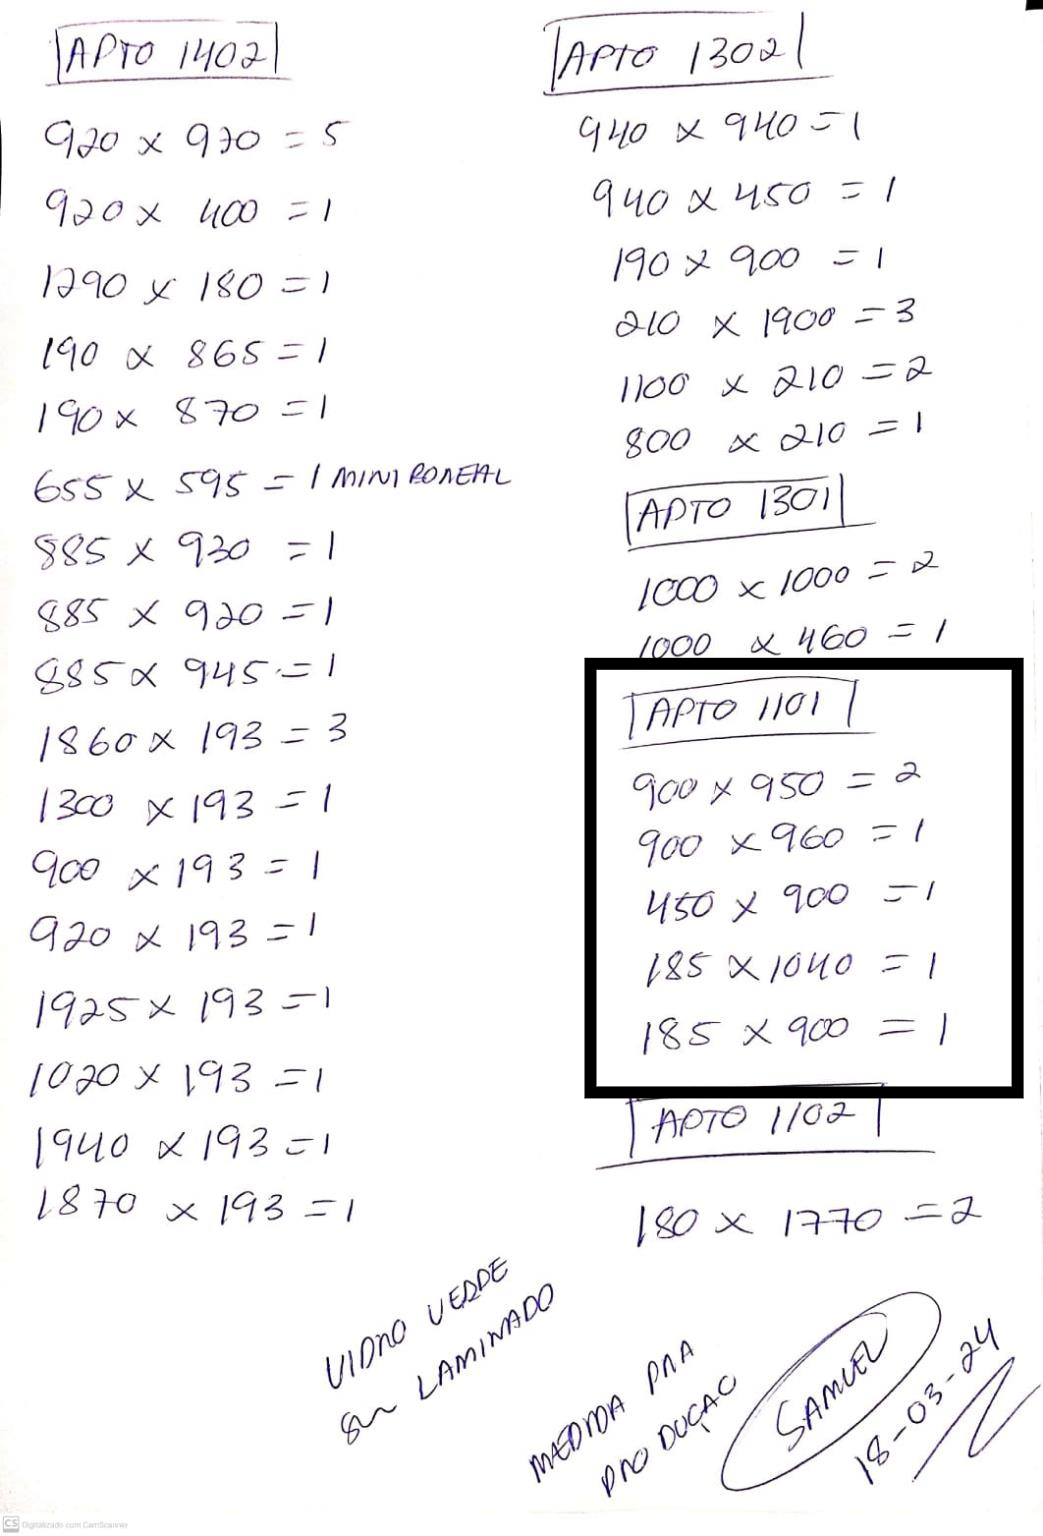 APTO 1402
920 x 970 = 5
920 x 400 = 1
1290 x 180 = 1
190 x 865 = 1
190 x 870 = 1
655 x 595 = 1 MINI BOREAL
885 x 930 = 1
885 x 920 = 1
885 x 945 = 1
1860 x 193 = 3
1300 x 193 = 1
900 x 193 = 1
920 x 193 = 1
1925 x 193 = 1
1020 x 193 = 1
1940 x 193 = 1
1870 x 193 = 1
APTO 1302
940 x 940 = 1
940 x 450 = 1
190 x 900 = 1
210 x 1900 = 3
1100 x 210 = 2
800 x 210 = 1
APTO 1301
1000 x 1000 = 2
1000 x 460 = 1
APTO 1101
900 x 950 = 2
900 x 960 = 1
450 x 900 = 1
185 x 1040 = 1
185 x 900 = 1
APTO 1102
180 x 1770 = 2
VIDRO VERDE
LAMINADO
MEDIDA PRA
PRODUÇAO
SAMUEL
18-03-24
CS Digitalizado com CamScanner